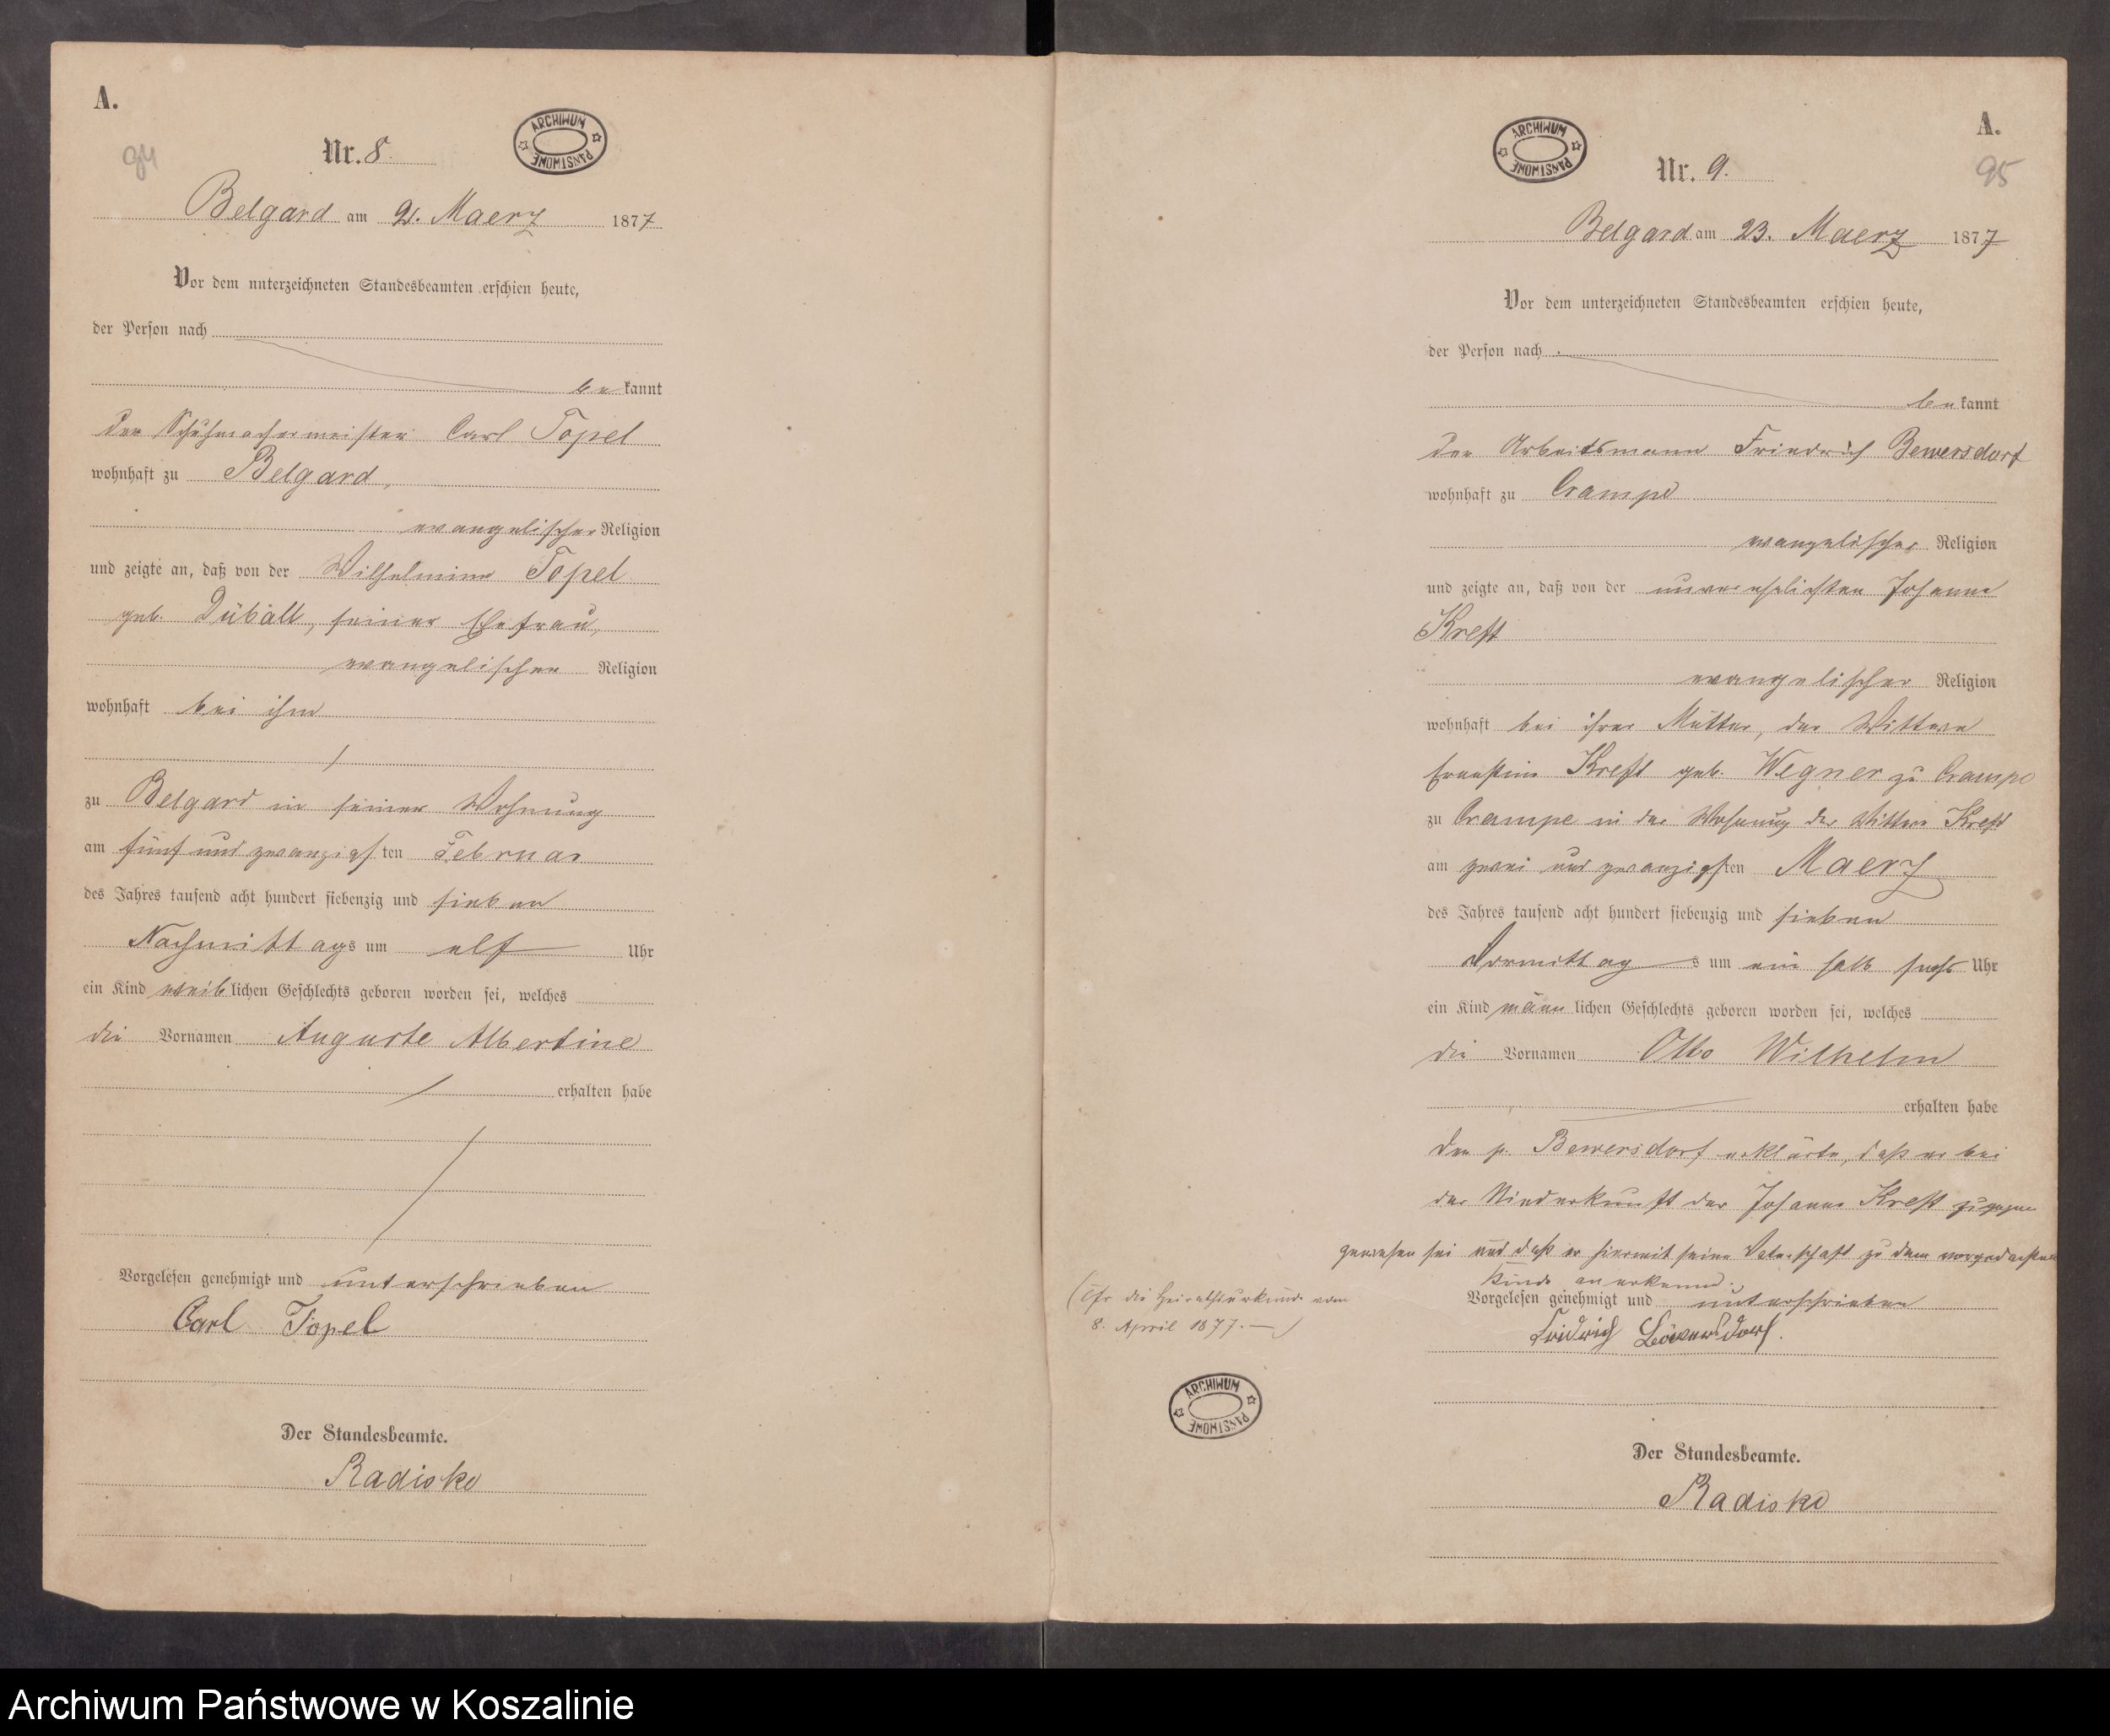 A.
94
Nr. 8.
ARCHIWUM PAŃSTWOWE
Belgard am 2. Maerz 1877
Vor dem unterzeichneten Standesbeamten erschien heute,
der Person nach
bekannt
der Schuhmachermeister Carl Topel
wohnhaft zu Belgard,
evangelischer Religion
und zeigte an, daß von der Wilhelmine Topel
geb. Düball, seiner Ehefrau,
evangelischer Religion
wohnhaft bei ihm
zu Belgard in seiner Wohnung
am fünf und zwanzigsten Februar
des Jahres tausend acht hundert siebenzig und sieben
Nachmittags um elf Uhr
ein Kind weiblichen Geschlechts geboren worden sei, welches
die Vornamen Auguste Albertine
erhalten habe
Vorgelesen genehmigt und unterschrieben
Carl Topel
Der Standesbeamte.
Radiske
A.
95
Nr. 9.
ARCHIWUM PAŃSTWOWE
Belgard am 23. Maerz 1877
Vor dem unterzeichneten Standesbeamten erschien heute,
der Person nach
bekannt
der Arbeitsmann Friedrich Bewersdorf
wohnhaft zu Crampe
evangelischer Religion
und zeigte an, daß von der unverehelichten Johanne
Kreft
evangelischer Religion
wohnhaft bei ihrer Mutter, der Wittwe
Ernestine Kreft geb. Wegner zu Crampe
zu Crampe in der Wohnung der Wittwe Kreft
am zwei und zwanzigsten Maerz
des Jahres tausend acht hundert siebenzig und sieben
Vormittags um ein halb sechs Uhr
ein Kind männlichen Geschlechts geboren worden sei, welches
die Vornamen Otto Wilhelm
erhalten habe
Der p. Bewersdorf erklärte, daß er bei
der Niederkunft der Johanne Kreft zugegen
gewesen sei und daß er hiermit seine Vaterschaft zu dem vorgedachten
Kinde anerkenne.
(Cfr die Heirathsurkunde vom
8. April 1877. —)
Vorgelesen genehmigt und unterschrieben
Fridrich Böwersdorf.
ARCHIWUM PAŃSTWOWE
Der Standesbeamte.
Radiske
Archiwum Państwowe w Koszalinie